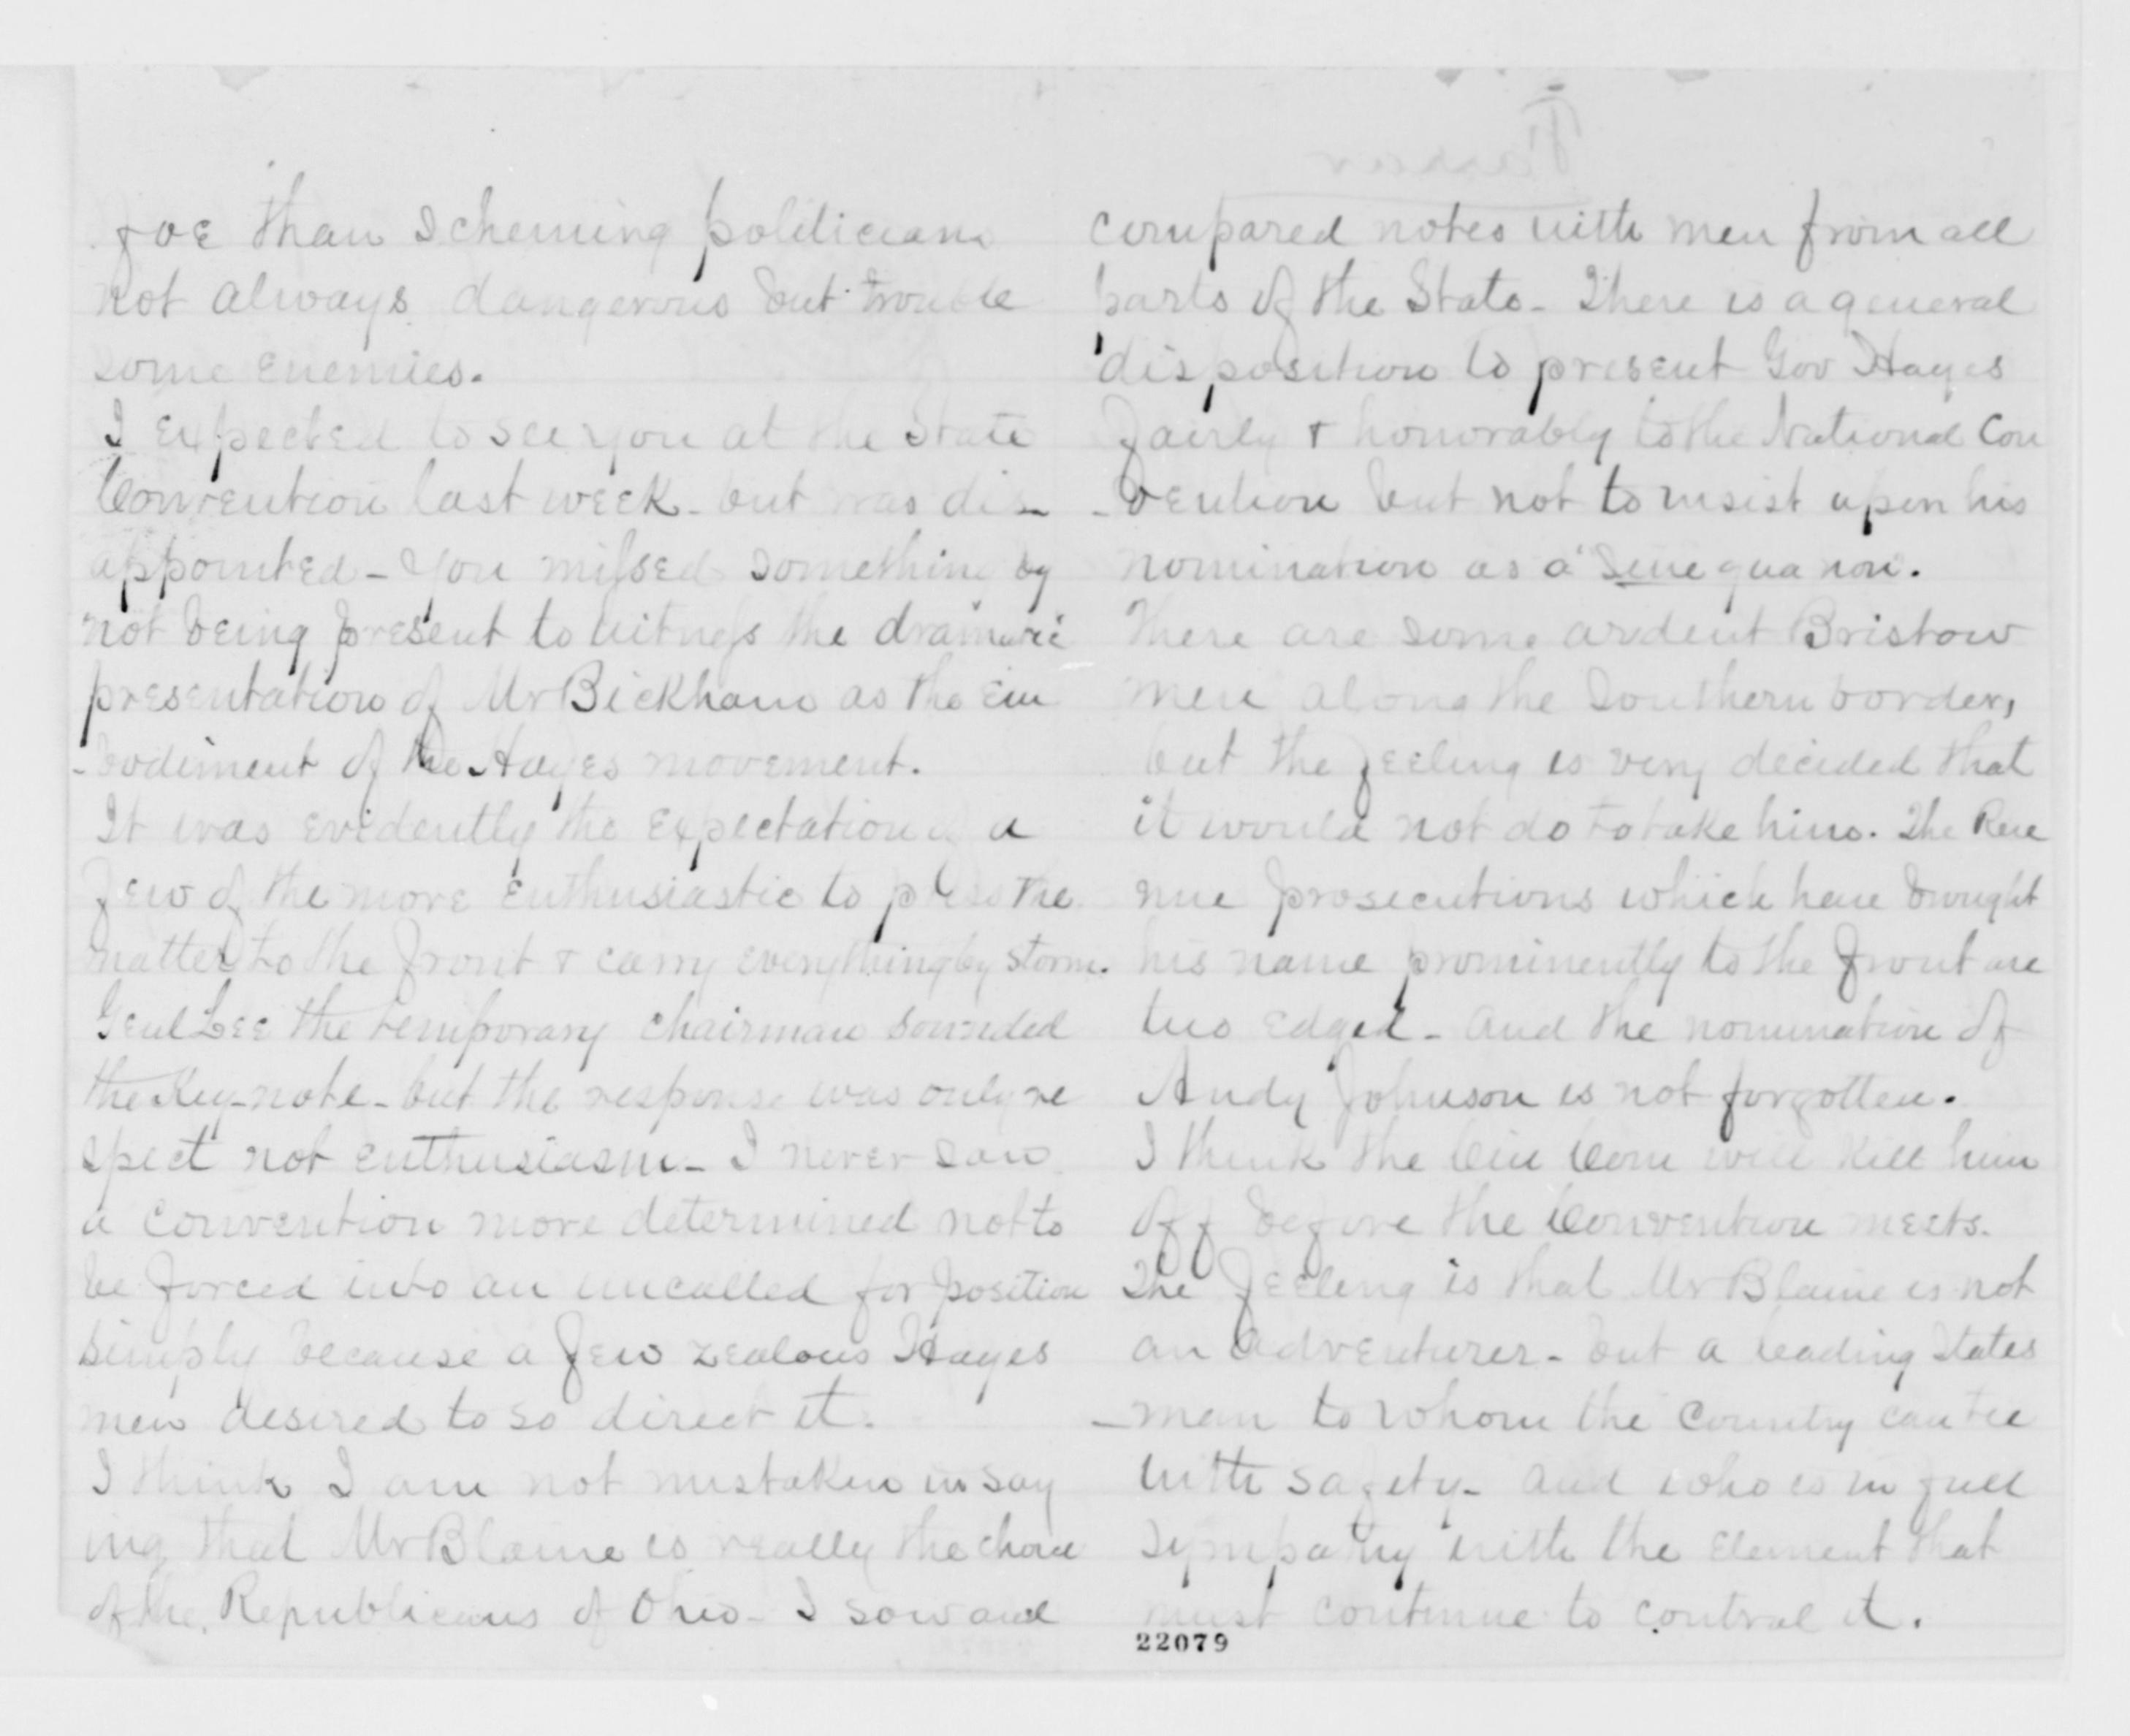 foe than scheming politicians
not always dangerous but trouble
some enemies.
I expected to see you at the State
Convention last week - but was dis-
appointed - you missed something by
not being present to witness the dramatic
presentation of Mr Bickham as the em
-bodiment of the Hayes movement.
It was evidently the expectation of a
few of the more enthusiastic to press the
matter to the front & carry everything by storm.
Genl Lee the temporary chairman sounded
the Key-note - but the response was only re
spect not enthusiasm - I never saw
a convention more determined not to
be forced into an uncalled for position
simply because a few zealous Hayes
men desired to so direct it.
I think I am not mistaken in say
ing that Mr Blaine is really the choice
of the Republicans of Ohio - I saw and
compared notes with men from all
parts of the State - There is a general
disposition to present Gov Hayes
fairly & honorably to the National Con
-vention but not to insist upon his
nomination as a "sine qua non".
There are some ardent Bristow
men along the Southern border,
but the feeling is very decided that
it would not do to take him. The Reve
nue prosecutions which have brought
his name prominently to the front are
two edged - and the nomination of
Andy Johnson is not forgotten.
I think the Cin Com will kill him
off before the Convention meets.
The feeling is that Mr Blaine is not
an adventurer - but a leading States
-man to whom the Country can tie
with safety - and who is in full
sympathy with the element that
must continue to control it.
22079